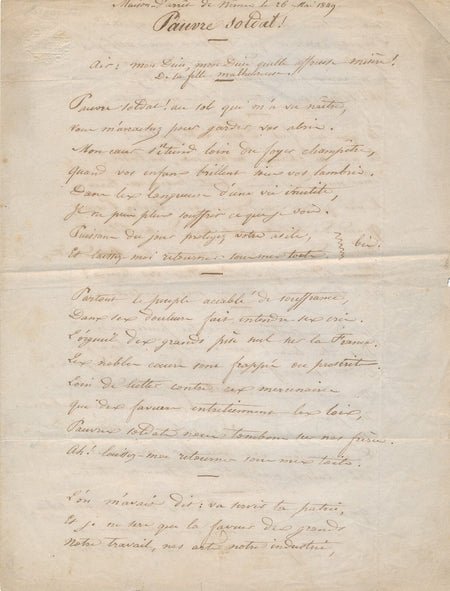 Maison D'arrêt de Nismes le 26 Mai 1849
Pauvre soldat!
Air: mon Dieu, mon Dieu quelle affreuse misère!
De la fille malheureuse.
Pauvre soldat! au sol qui m'a vu naître,
vous m'arrachez pour garder vos abris.
Mon cœur s'éteind loin du foyer champêtre,
quand vos enfans brillent sous vos lambris.
Dans les langueurs d'une vie inutile,
Je ne puis plus souffrir ce que je vois.
Puissans du jour protégez votre asile, bis.
Et laissez moi retourner sous mes toits.
Partout le peuple accablé de souffrance,
Dans ses douleurs fait intendre ses cris.
L'orgueil des grands pèse sur la France.
Les nobles cœurs sont frappés ou proscrits.
Loin de lutter contre ces mercenaires
que des faveurs entretiennent les lois,
Pauvres soldats nous tombons sur nos frères.
Ah! laissez-moi retourner sous mes toits.
L'on m'avait dit: va servir ta patrie,
Et je ne sers que la faveur des grands
Notre travail, nos arts notre industrie,